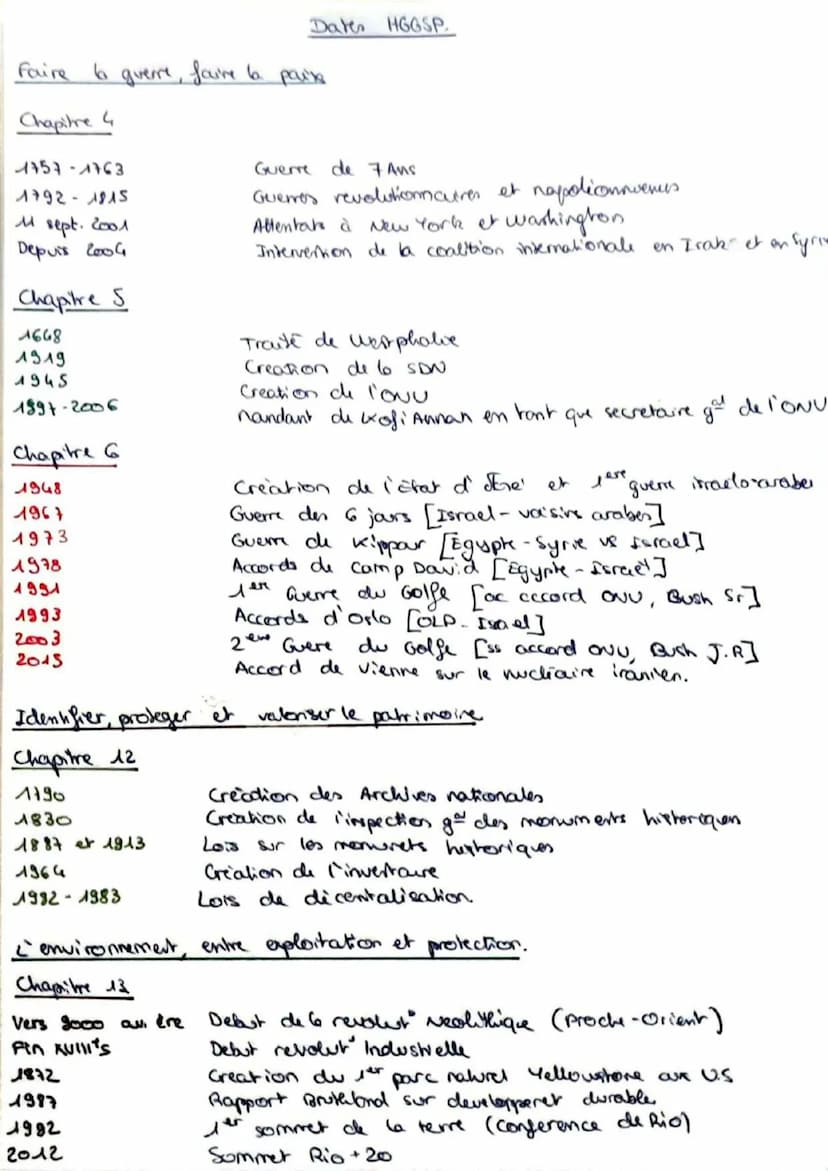 Dates HGGSP.
Faire la guerre, faire la paix
Chapitre 4
1757-1763 Guerre de 7 Ans
1792-1815 Guerres revolutionnaires et napoléonniennes
11 sept. 2001 Attentats à New York et Washington
Depuis 2004 Intervention de la coalition internationale en Irak et en Syrie
Chapitre 5
1648 Traité de Westphalie
1919 Creation de la SDN
1945 Creation de l'ONU
1997-2006 Mandant de Kofi Annan en tant que secretaire gal de l'ONU
Chapitre 6
1948 Création de l'état d' et 1ere guerre israelo-arabe
1967 Guerre des 6 jours [Israel - voisins arabes]
1973 Guerre du Kippar [Egypte - Syrie vs Israel]
1978 Accords de Camp David [Egypte - Israel]
1991 1er Guerre du Golfe [ac accord ONU, Bush Sr]
1993 Accords d'Oslo [OLP - Israel]
2003 2eme Guere du Golfe [ss accord ONU, Bush J.R]
2015 Accord de Vienne sur le nucléaire iranien.
Identifier, proteger et valoriser le patrimoine
Chapitre 12
1790 Création des Archives nationales
1830 Création de l'inspection gal des monuments historiques
1887 et 1913 Lois sur les monuments historiques
1964 Création de l'inventaire
1982-1983 Lois de décentralisation.
L'environnement, entre exploitation et protection.
Chapitre 13
Vers 9000 av. ère Debut de la revolut° Neolithique (Proche-Orient)
Fin XVIII's Debut revolut° Industrielle
1872 Creation du 1er parc naturel Yellowstone aux U.S
1987 Rapport sur developpement durable
1992 1er sommet de la terre (Conference de Rio)
2012 Sommet Rio + 20